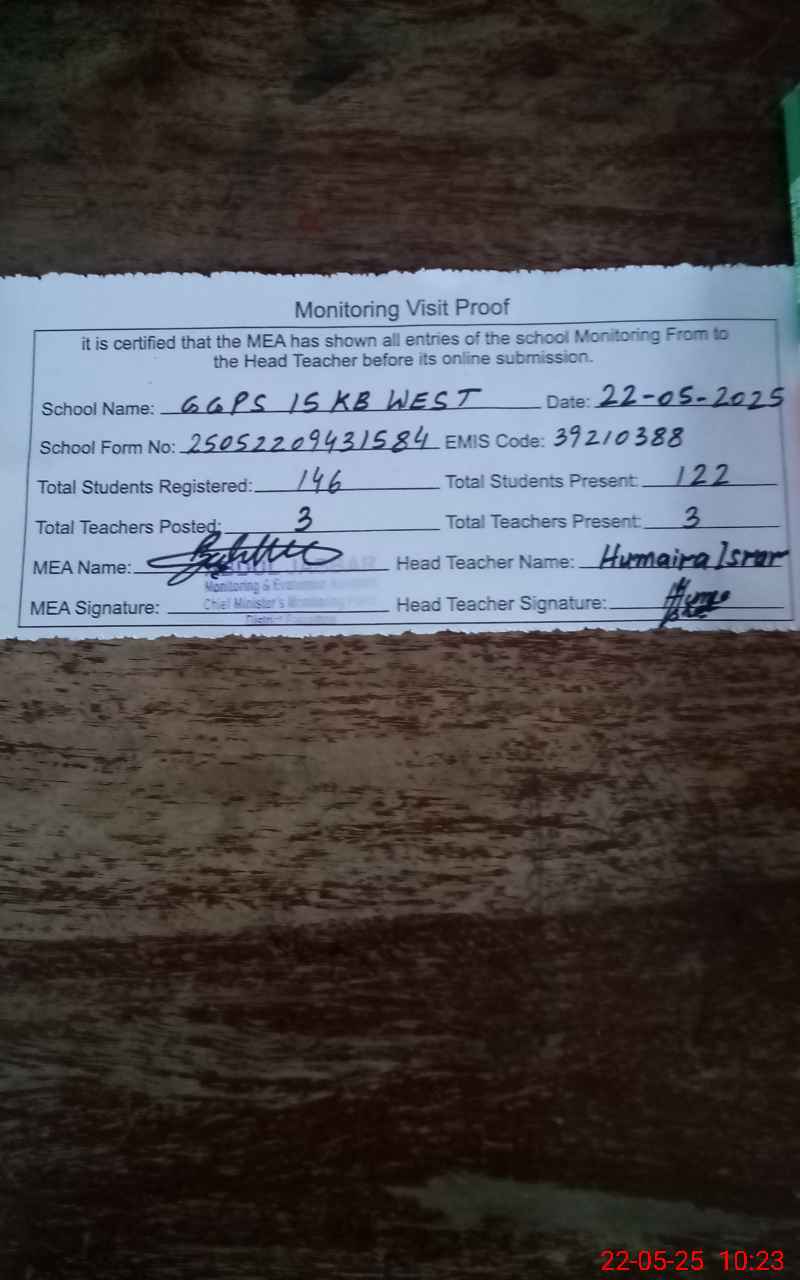 Monitoring Visit Proof
it is certified that the MEA has shown all entries of the school Monitoring From to
the Head Teacher before its online submission.
School Name: GGPS 15 KB WEST Date: 22-05-2025
School Form No: 25052209431584 EMIS Code: 39210388
Total Students Registered: 146 Total Students Present: 122
Total Teachers Posted: 3 Total Teachers Present: 3
MEA Name: Head Teacher Name: Humaira Israr
Monitoring & Evaluation
MEA Signature: Chief Minister's Monitoring Head Teacher Signature:
District
22-05-25 10:23